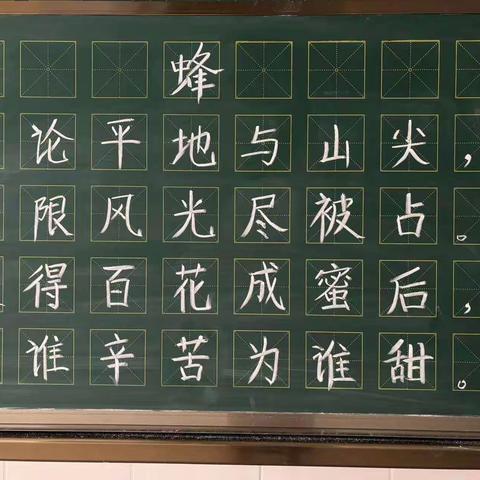 蜂
论平地与山尖，
限风光尽被占。
得百花成蜜后，
谁辛苦为谁甜。